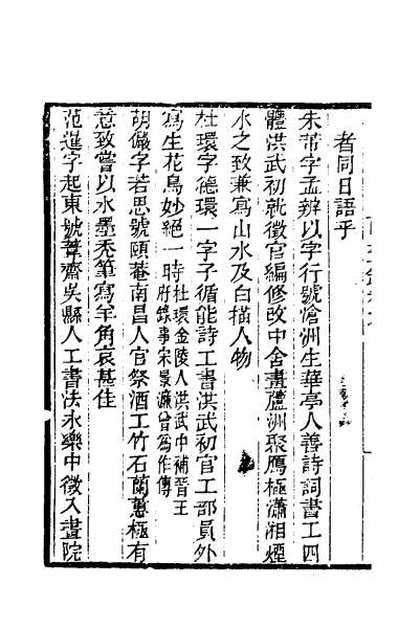 者同日語乎
朱芾字孟辨以字行號愴洲生華亭人善詩詞書工四
體洪武初就徵官編修改中舍畫蘆洲聚鴈極瀟湘煙
水之致兼寫山水及白描人物
杜環字德環一字子循能詩工書洪武初官工部員外
寫生花鳥妙絕一時杜環金陵人洪武中補晉王
府錄事宋景濂曾爲作傳
胡儼字若思號頤菴南昌人官祭酒工竹石蘭蕙極有
意致嘗以水墨禿筆寫羊角哀甚佳
范暹字起東號葦齋吳縣人工書法永樂中徵入畫院